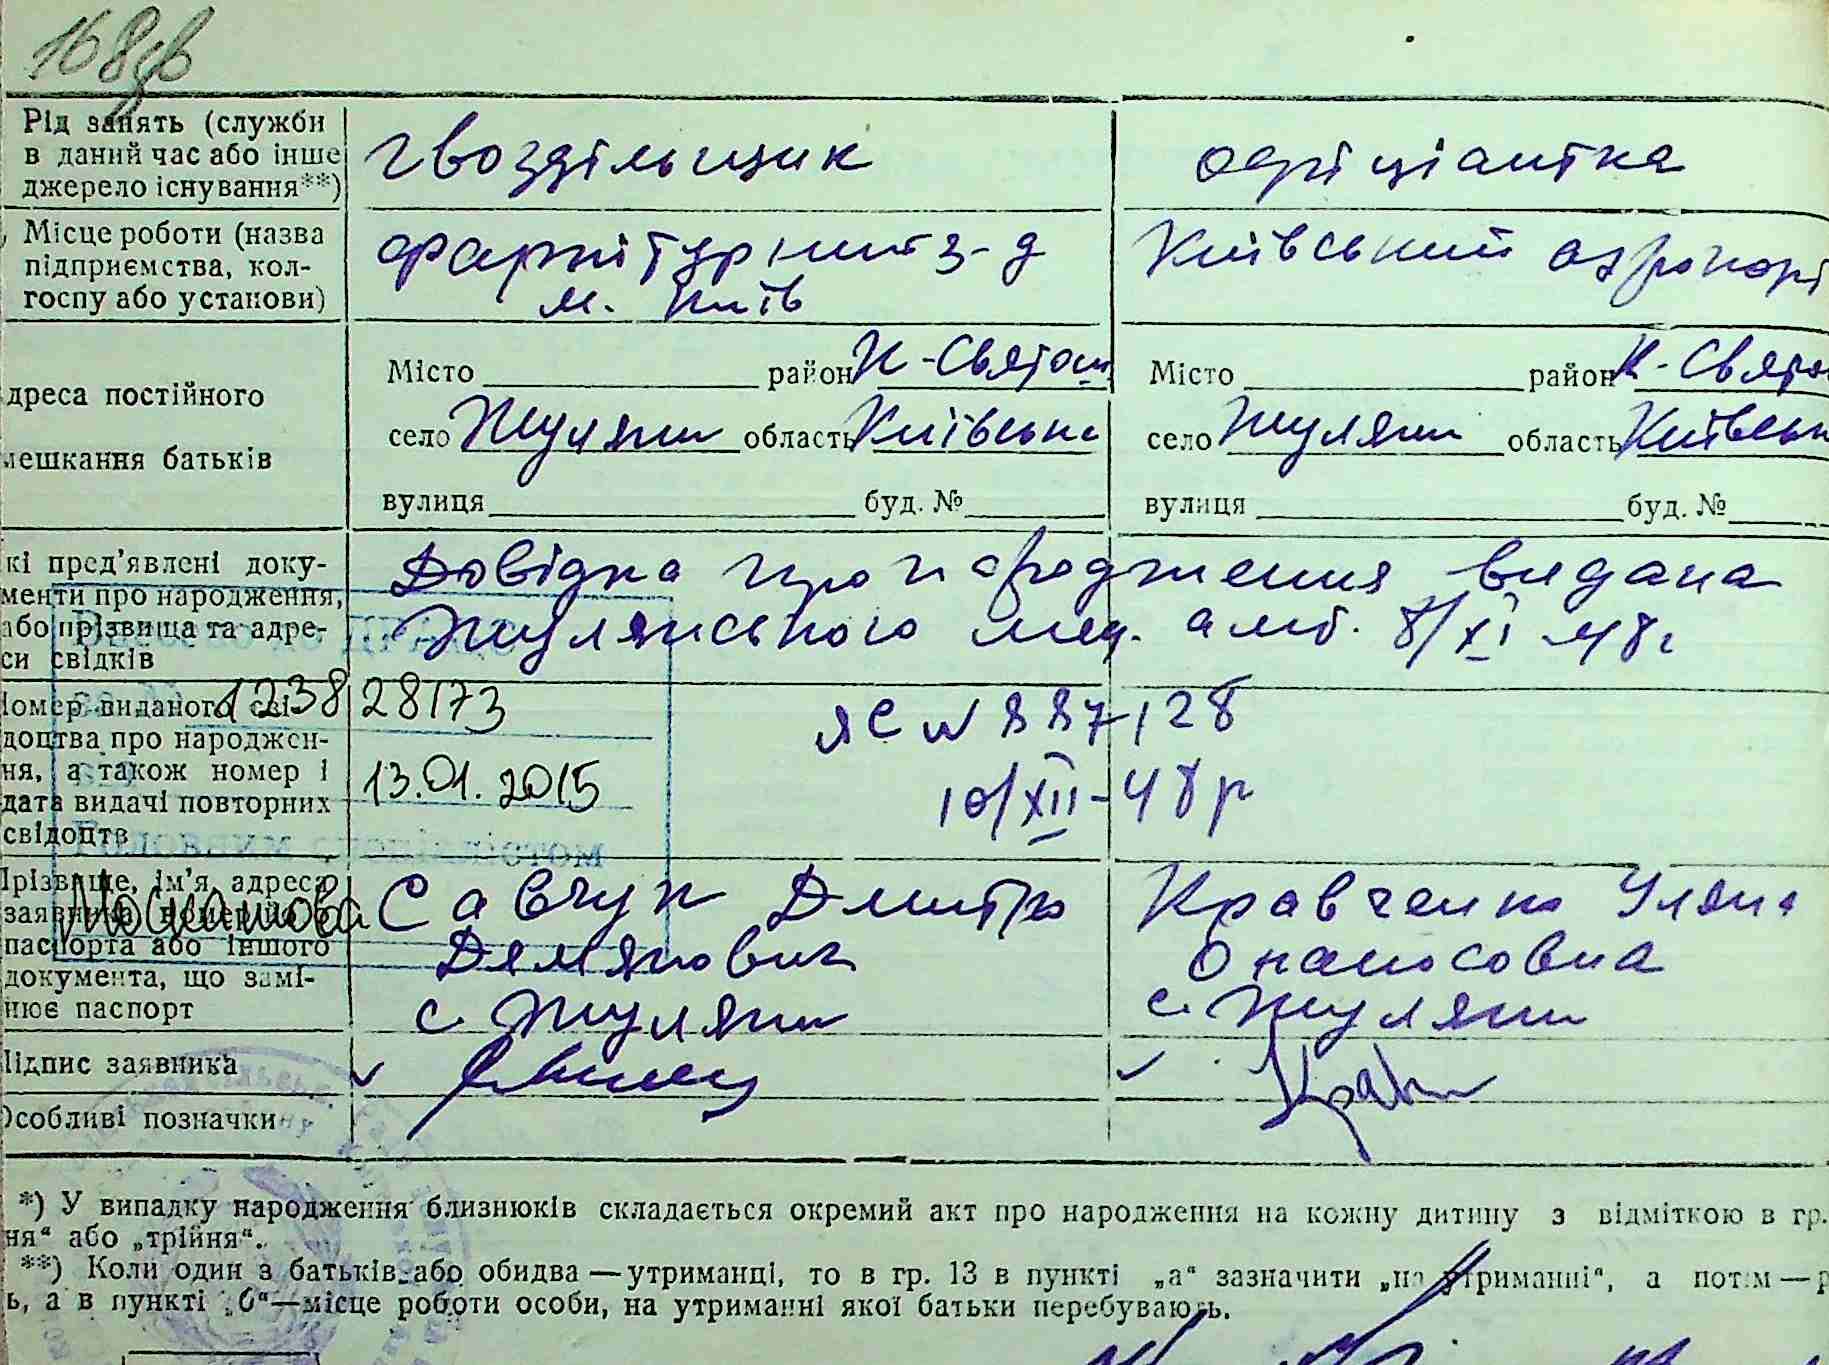 168
Рід занять (служби
в даний час або інше
джерело існування**)
гвоздільщик
офіціантка
Місце роботи (назва
підприємства, кол-
госпу або установи)
фарнітурний з-д
м. Київ
Київський аэропорт
дреса постійного
мешкання батьків
Місто район К-Святош
село Жуляни область Київська
вулиця буд. №
Місто район К-Свято
село Жуляни область Київськ
вулиця буд. №
кі пред'явлені доку-
менти про народження,
або прізвища та адре-
си свідків
Довідка про народження видана
Жулянського мед. амб. 8/XI 48 г
Номер виданого сві-
доцтва про народжен-
ня, а також номер і
дата видачі повторних
свідоцтв
123828173
13.01.2015
ЯС № 887128
10/XII-48 р
Прізвище, ім'я, адреса
заявника, номер його
паспорта або іншого
документа, що замі-
нює паспорт
Савчук Дмитро
Демянович
с. Жуляни
Кравченко Уляна
Опанасовна
с. Жуляни
Підпис заявника
Особливі позначки
*) У випадку народження близнюків складається окремий акт про народження на кожну дитину з відміткою в гр.
ня“ або „трійня“.
**) Коли один з батьків або обидва — утриманці, то в гр. 13 в пункті „а“ зазначити „на утриманні“, а потім —
ь, а в пункті „б“—місце роботи особи, на утриманні якої батьки перебувають.